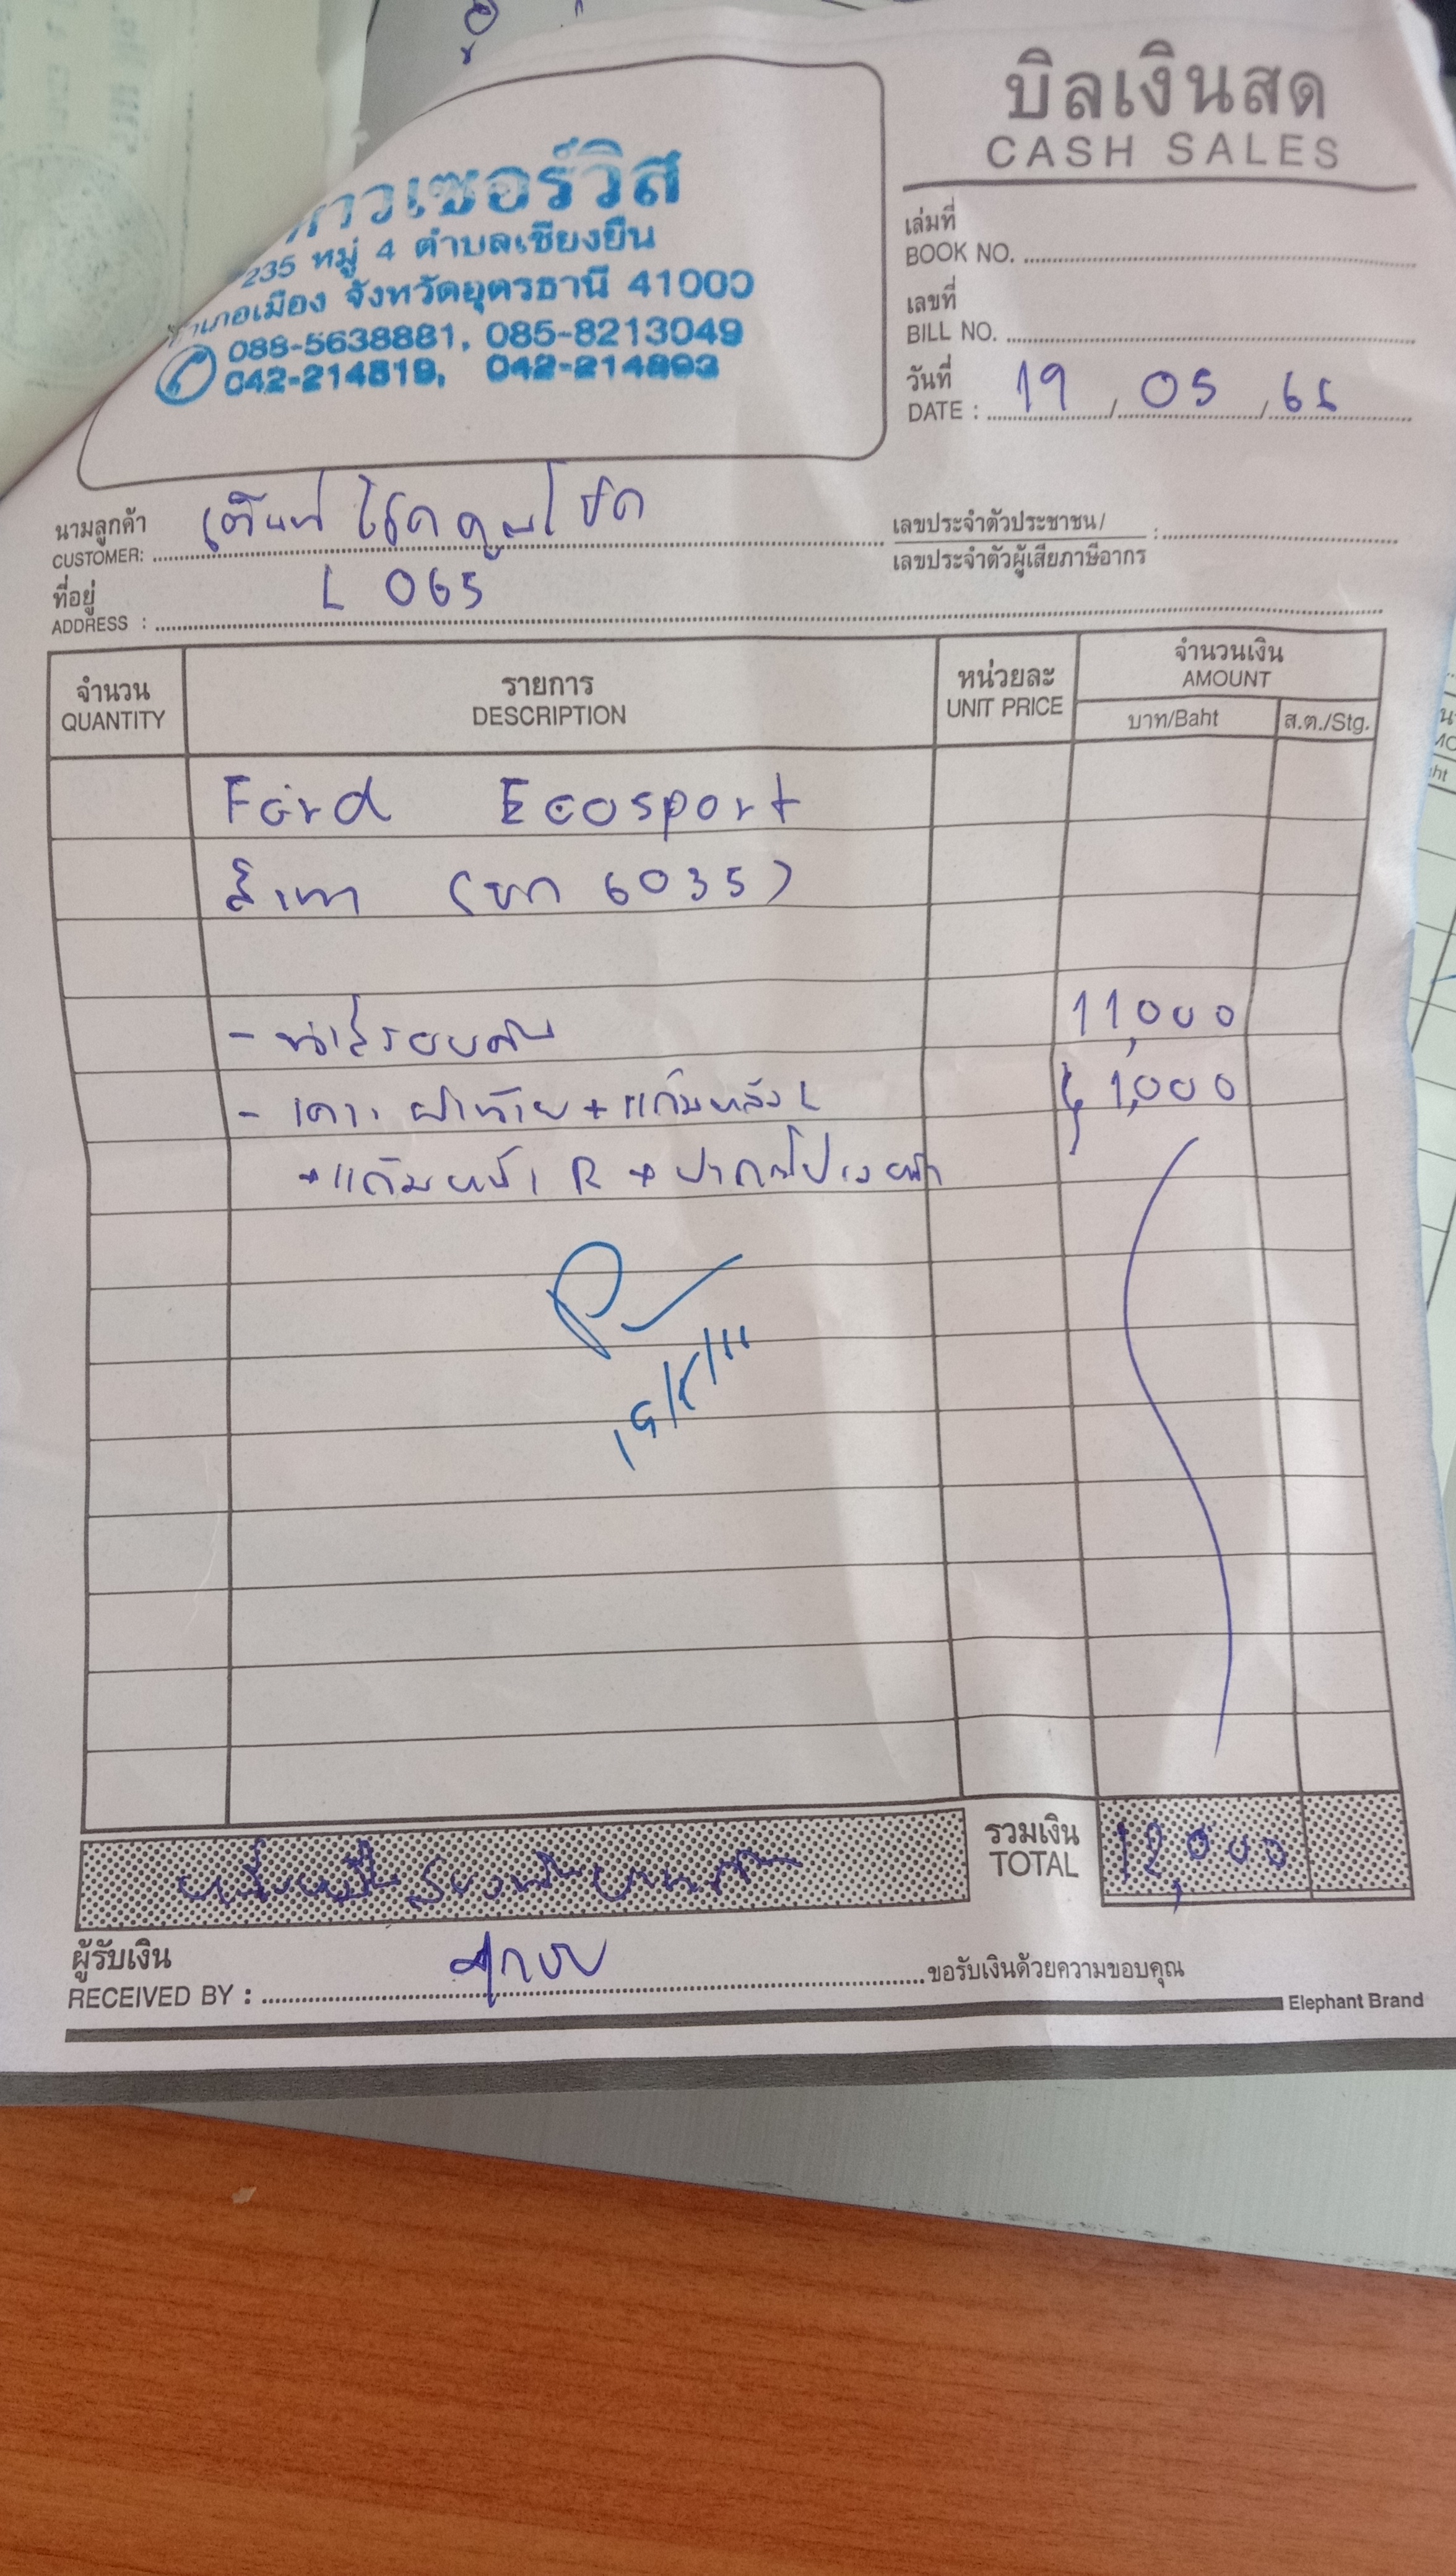 บิลเงินสด
CASH SALES
าวเซอร์วิส
235 หมู่ 4 ตำบลเชียงยืน
อำเภอเมือง จังหวัดอุดรธานี 41000
088-5638881, 085-8213049
042-214819, 042-214893
เล่มที่
BOOK NO.
เลขที่
BILL NO.
วันที่
DATE : 19 / 05 / 65
นามลูกค้า
CUSTOMER: เต็นท์ โชคคูณโชค
เลขประจำตัวประชาชน/
เลขประจำตัวผู้เสียภาษีอากร :
ที่อยู่
ADDRESS : L 065
จำนวน
QUANTITY
รายการ
DESCRIPTION
หน่วยละ
UNIT PRICE
จำนวนเงิน
AMOUNT
บาท/Baht
ส.ต./Stg.
Ford Ecosport
สีเทา (ขก 6035)
- ทำสีรอบคัน 11,000
- เคาะ ฝาท้าย + แก้มหลัง L 1,000
+ แก้มหน้า R +
19/5/
หนึ่งหมื่นสองพันบาทถ้วน
รวมเงิน
TOTAL
12,000
ผู้รับเงิน
RECEIVED BY :
ขอรับเงินด้วยความขอบคุณ
Elephant Brand